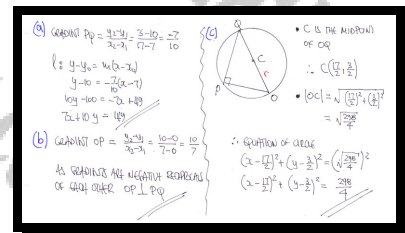 (a) GRADIENT PQ = y₂-y₁/x₂-x₁ = 3-10/17-7 = -7/10
l: y-y₀ = m(x-x₀)
y-10 = -7/10(x-7)
10y-100 = -7x+49
7x+10y = 149
(b) GRADIENT OP = y₂-y₁/x₂-x₁ = 10-0/7-0 = 10/7
AS GRADIENTS ARE NEGATIVE RECIPROCALS
OF EACH OTHER OP ⊥ PQ
(c)
Q
C
r
P
O
• C IS THE MIDPOINT
OF OQ
∴ C(17/2, 3/2)
• |OC| = √(17/2)²+(3/2)²
= √298/4
∴ EQUATION OF CIRCLE
(x-17/2)²+(y-3/2)² = (√298/4)²
(x-17/2)²+(y-3/2)² = 298/4